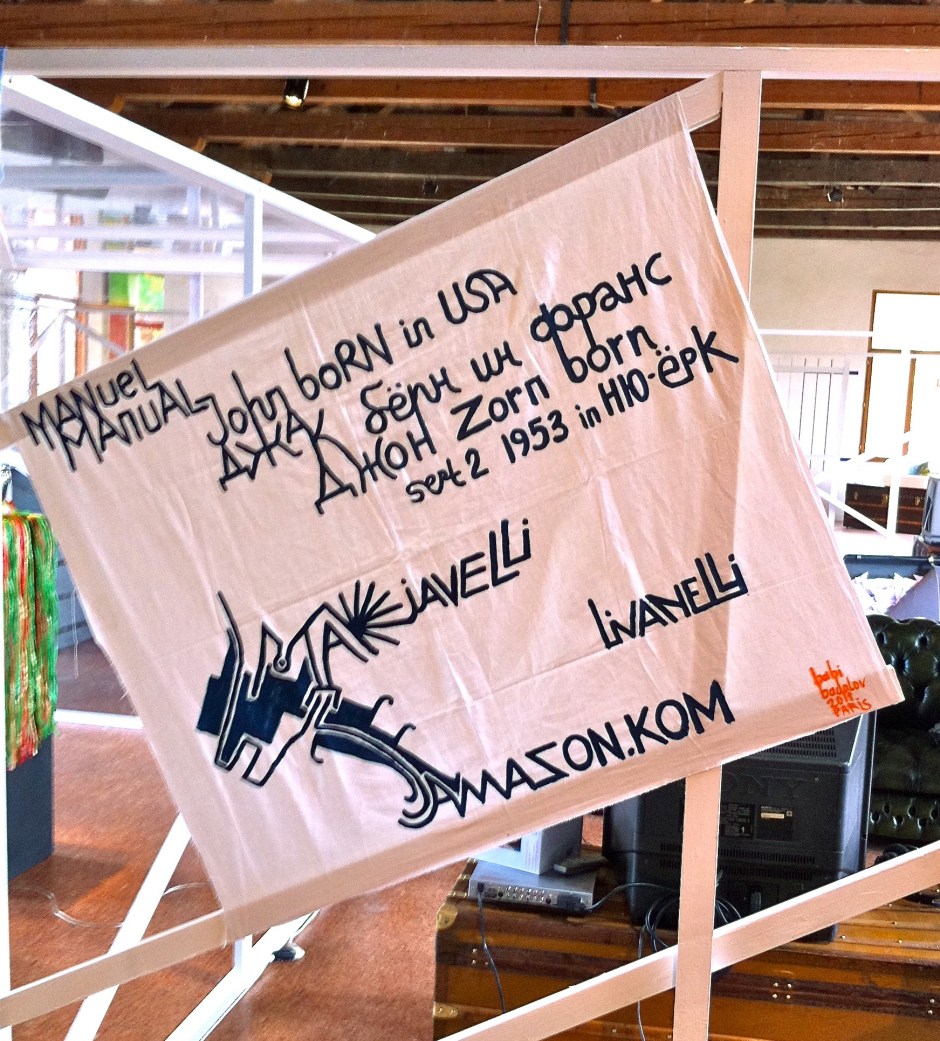 MANUEL
MANUAL
John boRN in USA
ДЖАК бёрн ин франс
ДЖОН Zorn born
sept 2 1953 in НЮ-ёрк
MAKjAVELLi
LiVANELLi
AMAZON.KOM
babi
badalov
2018
PARiS
SONY